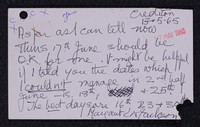 Crediton
15.5.65
As far as I can tell now
think 17th June should be
O.K. for me. It might be helpful
if I told you the dates which I
couldn't manage in 2nd half
June — 19th + 25th
The best days are 16th 23 + 30th
Margaret